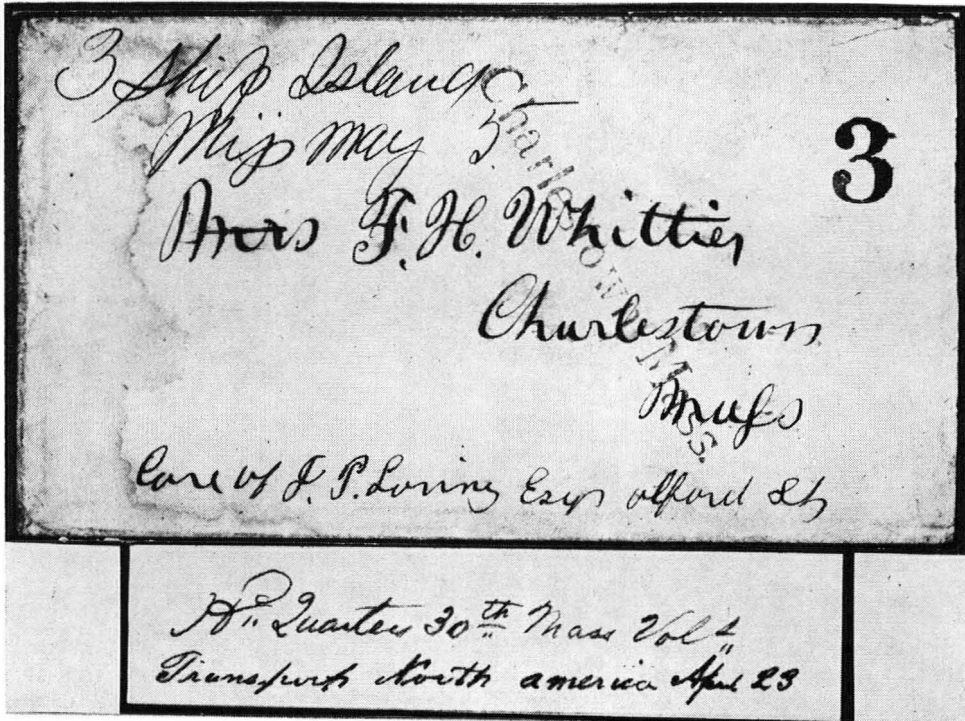 3 Ship Island
Miss May 5
3
Charlestown Mass.
Mrs F. H. Whittier
Charlestown
Mass
Care of F. P. Loring Esqr Alford St
Hd. Quarters 30th Mass Vols
Transport North America April 23